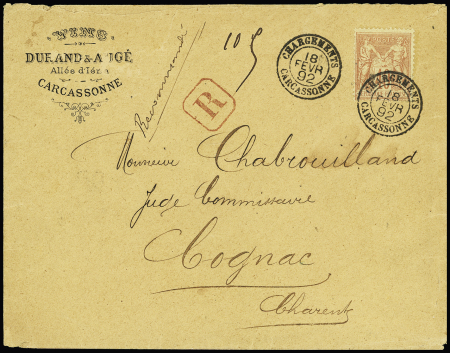 VINS
DURAND & AUGÉ
Allée d'Iéna
CARCASSONNE
Recommandé
R
CHARGEMENTS
18
FÉVR
92
CARCASSONNE
CHARGEMENTS
18
FÉVR
92
CARCASSONNE
Monsieur Chabrouilland
Juge Commissaire
Cognac
Charente